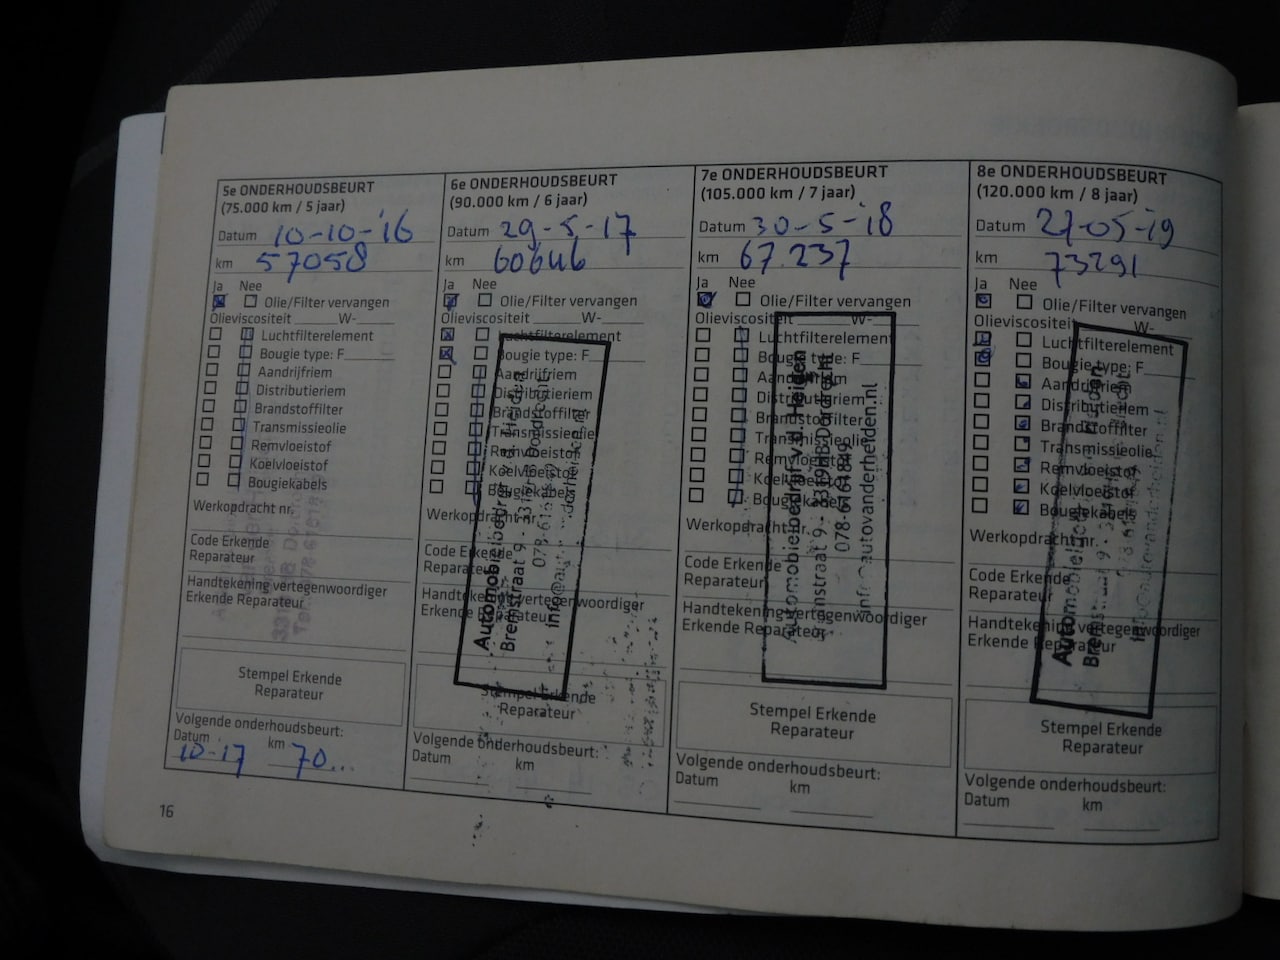 5e ONDERHOUDSBEURT
(75.000 km / 5 jaar)
Datum 10-10-'16
km 57058
Ja Nee
Olie/Filter vervangen
Olieviscositeit ______W-____
Luchtfilterelement
Bougie type: F______
Aandrijfriem
Distributieriem
Brandstoffilter
Transmissieolie
Remvloeistof
Koelvloeistof
Bougiekabels
Werkopdracht nr.
Code Erkende
Reparateur
Handtekening vertegenwoordiger
Erkende Reparateur
Stempel Erkende
Reparateur
Volgende onderhoudsbeurt:
Datum km
10-17 70...
6e ONDERHOUDSBEURT
(90.000 km / 6 jaar)
Datum 29-5-17
km 60646
Ja Nee
Olie/Filter vervangen
Olieviscositeit ______W-____
Luchtfilterelement
Bougie type: F______
Aandrijfriem
Distributieriem
Brandstoffilter
Transmissieolie
Remvloeistof
Koelvloeistof
Bougiekabels
Werkopdracht nr.
Code Erkende
Reparateur
Handtekening vertegenwoordiger
Erkende Reparateur
Automobielbedrijf v.d. Heiden
Bremstraat 9 - 3319 Dordrecht
Stempel Erkende
Reparateur
Volgende onderhoudsbeurt:
Datum km
7e ONDERHOUDSBEURT
(105.000 km / 7 jaar)
Datum 30-5-'18
km 67.237
Ja Nee
Olie/Filter vervangen
Olieviscositeit ______W-____
Luchtfilterelement
Bougie type: F______
Aandrijfriem
Distributieriem
Brandstoffilter
Transmissieolie
Remvloeistof
Koelvloeistof
Bougiekabels
Werkopdracht nr.
Code Erkende
Reparateur
Handtekening vertegenwoordiger
Erkende Reparateur
Automobielbedrijf v.d. Heiden
Bremstraat 9 - 3319 Dordrecht
078-6161849
info@autovanderheiden.nl
Stempel Erkende
Reparateur
Volgende onderhoudsbeurt:
Datum km
8e ONDERHOUDSBEURT
(120.000 km / 8 jaar)
Datum 27-05-'19
km 73291
Ja Nee
Olie/Filter vervangen
Olieviscositeit ______W-____
Luchtfilterelement
Bougie type: F______
Aandrijfriem
Distributieriem
Brandstoffilter
Transmissieolie
Remvloeistof
Koelvloeistof
Bougiekabels
Werkopdracht nr.
Code Erkende
Reparateur
Handtekening vertegenwoordiger
Erkende Reparateur
Stempel Erkende
Reparateur
Volgende onderhoudsbeurt:
Datum km
16